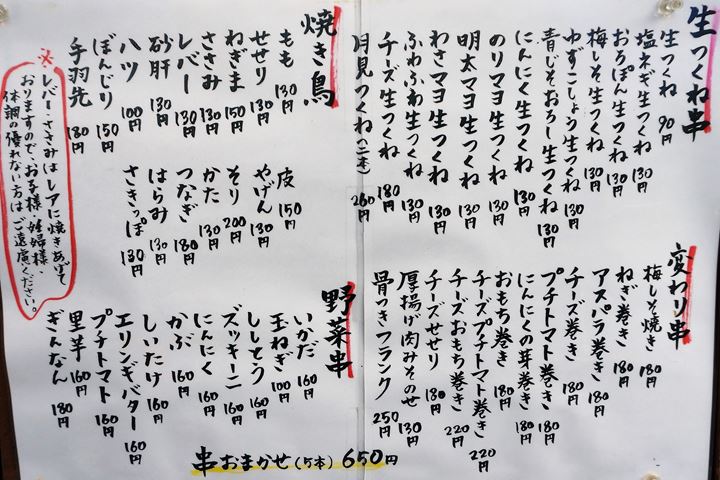 生つくね串
生つくね 90円
塩ネギ生つくね 130円
おろぽん生つくね 130円
梅しそ生つくね 130円
ゆずこしょう生つくね 130円
青じそおろし生つくね 130円
にんにく生つくね 130円
のりマヨ生つくね 130円
明太マヨ生つくね 130円
わさマヨ生つくね 130円
ふわふわ生つくね 130円
チーズ生つくね 180円
月見つくね(二本) 260円
変わり串
梅しそ焼き 180円
ねぎ巻き 180円
アスパラ巻き 180円
チーズ巻き 180円
プチトマト巻き 180円
にんにくの芽巻き 180円
おもち巻き 180円
チーズプチトマト巻き 220円
チーズおもち巻き 220円
チーズせせり 180円
厚揚げ肉みそのせ 130円
骨つきフランク 250円
焼き鳥
もも 130円
せせり 130円
ねぎま 150円
ささみ 130円
レバー 130円
砂肝 130円
ハツ 100円
ぼんじり 150円
手羽先 180円
皮 150円
やげん 130円
そり 200円
かた 130円
つなぎ 180円
はらみ 130円
さきっぽ 130円
※レバー・ささみはレアに焼きあげて
おりますので、お子様・妊婦様・
体調の優れない方はご遠慮ください。
野菜串
いかだ 160円
玉ねぎ 100円
ししとう 160円
ズッキーニ 160円
にんにく 160円
かぶ 160円
しいたけ 160円
エリンギバター 160円
プチトマト 160円
里芋 160円
ぎんなん 180円
串おまかせ(5本) 650円